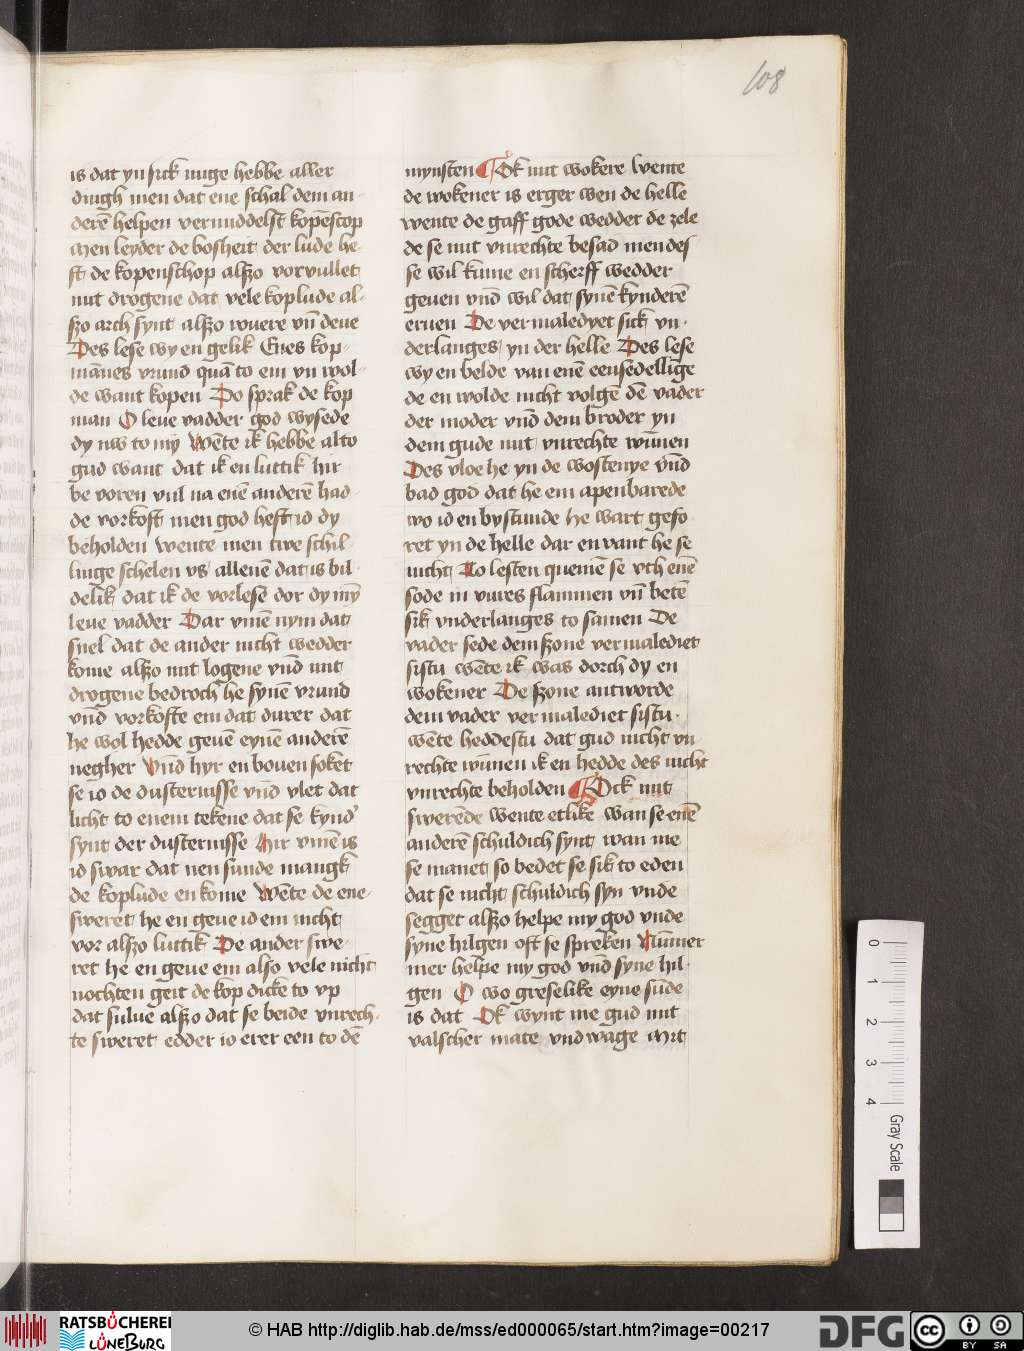 108
is dat yn sick nuge hebbe aller
dingh men dat ene schal dem an-
derē helpen vermiddelst kopēscop
men leyder de bosheit der lude he-
ft de kopenschop alßo vorvullet
mit drogene dat vele koplude al-
ßo arch synt alßo wuere vn̄ deue
Des lese wy en gelik Enes kop-
mānes vrund quā to em vn wol-
de want kopen Do sprak de kop
man O leue vadder god wysede
dy nw to my Wēte ik hebbe alto
gud want dat ik en luttik hir
be voren vul na enē anderē had-
de vorkoft men god heft id dy
beholden wente men twe schil-
linge schelen vs allenē dat is bil-
delik dat ik de vorlese dor dy mȳ
leue vadder Dar vmē nym dat
snel dat de ander nicht wedder
kome alßo mit logene vnd mit
drogene bedroch he synē vrund
vnd vorkofte em dat durer dat
he wol hedde geuē eynē anderē
negher Vnd hyr en bouen soket
se io de dusternisse vnd vlet dat
licht to enem tekene dat se kynd'
synt der dusternisse Hir vmē is
id swar dat nen sunde mangk
de koplude en kome Wēte de ene-
sweret he en geue id em nicht
vor alßo luttik De ander swe-
ret he en geue em also vele nicht
nochten geit de kop dicke to vp
dat sulue alßo dat se beide vnrech-
te sweret edder io erer een to dē
mynsten Ok mit wokere wente
de wokener is erger wen de helle
wente de gaff gode wedder de zele
de se mit vnrechte besad men des
se wil kume en scherff wedder
geuen vnd wil dat synē kynderē
eruen De vermaledyet sick vn-
derlanges yn der helle Des lese
wy en belde van enē eensedellige
de en wolde nicht volgē dē vader
der moder vnd dem broder yn
dem gude mit vnrechte wūnen
Des vloe he yn de wostenye vnd
bad god dat he em apenbarede
wo id en bystunde he wart gefo
ret yn de helle dar en vant he se
nicht To lesten quemē se vth enē
sode in vures flammen vn̄ betē
sik vnderlanges to samen De
vader sede dem ßone vermalediet
sistu wēte ik was dorch dy en
wokener De ßone antworde
dem vader vermalediet sistu.
wēte heddestu dat gud nicht vn-
rechte wūnen ik en hedde des nicht
vnrechte beholden Ock mit
swerēde wente etlike wan se enē
anderē schuldich synt wan me
se manet so bedet se sik to eden
dat se nicht schuldich syn vnde
segget alßo helpe my god vnde
syne hilgen oft se spreken Nūmer
mer helpe my god vnd syne hil-
gen O wo greselike eyne sūde
is dat Ok wynt me gud mit
valscher mate vnd wage Mit
0 1 2 3 4
Gray Scale
RATSBÜCHEREI
LÜNEBURG
© HAB http://diglib.hab.de/mss/ed000065/start.htm?image=00217
DFG
cc BY SA